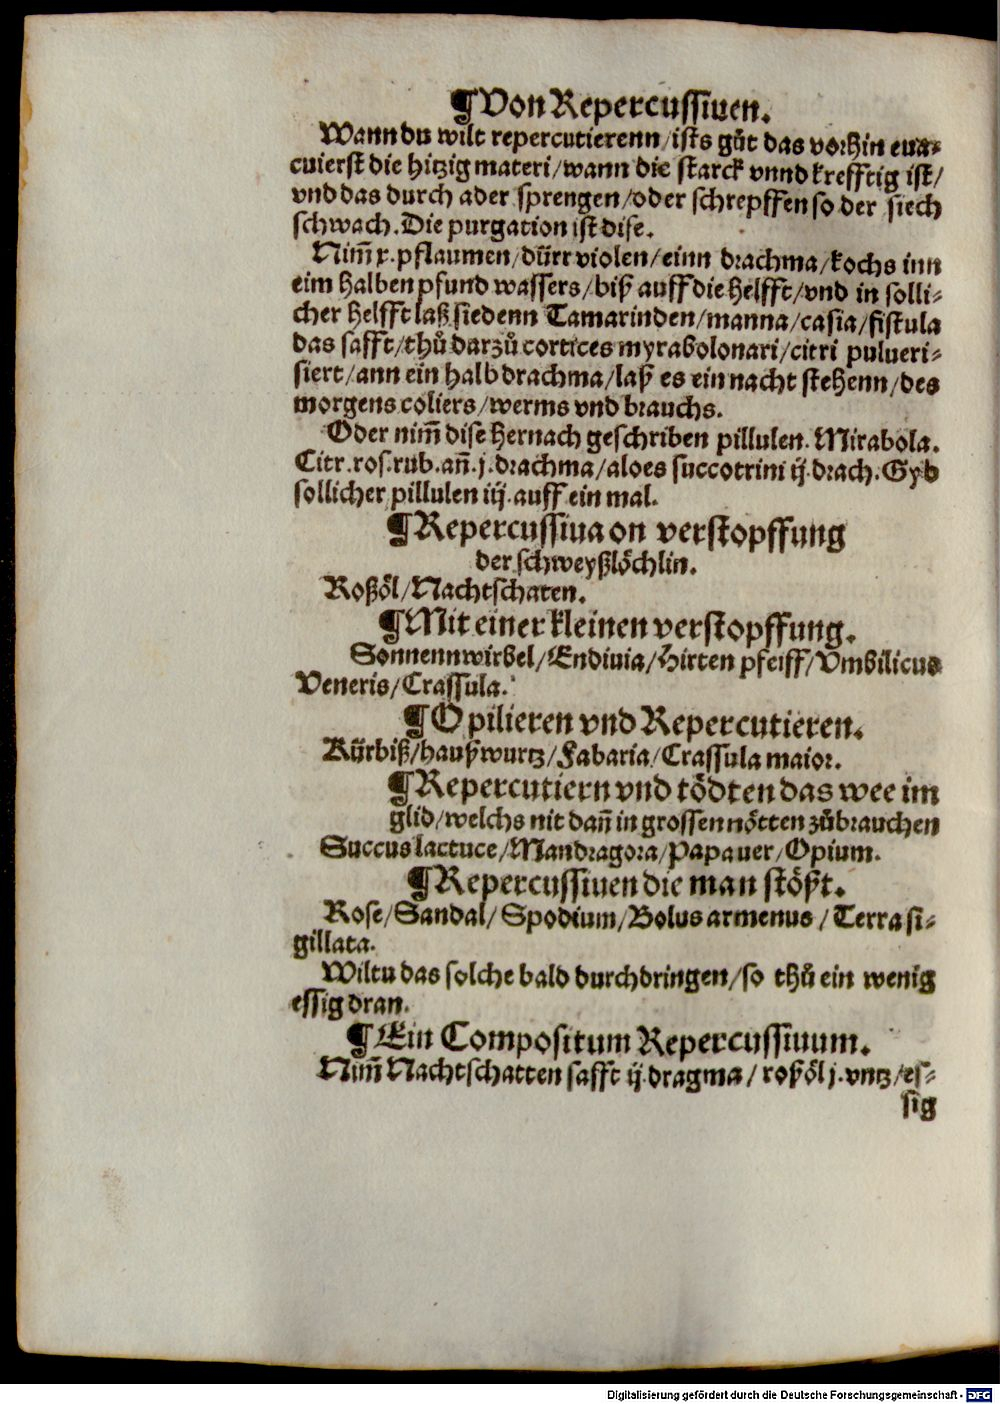 ¶Von Repercussiuen.
Wann du wilt repercutierenn/ists gůt das vorhin eua-
cuierst die hitzig materi/wann die starck vnnd krefftig ist/
vnd das durch ader sprengen/oder schrepffen so der siech
schwach. Die purgation ist dise.
Nim̃ x. pflaumen/dürr violen/einn drachma/kochs inn
eim halben pfund wassers/biß auff die helfft/vnd in solli-
cher helfft laß siedenn Tamarinden/manna/casia/fistula
das safft/thů darzů cortices myrabolonari/citri pulueri-
siert/ann ein halb drachma/laß es ein nacht stehenn/des
morgens coliers/werms vnd brauchs.
Oder nim̃ dise hernach geschriben pillulen. Mirabola.
Citr. ros. rub. an̄. j. drachma/aloes succotrini ij. drach. Gyb
sollicher pillulen iij. auff ein mal.
¶Repercussiua on verstopffung
der schweyßlöchlin.
Roßöl/Nachtschaten.
¶Mit einer kleinen verstopffung.
Sonnennwirbel/Endiuia/Hirten pfeiff/Vmbilicus
Veneris/Crassula.
¶Opilieren vnd Repercutieren.
Kürbiß/haußwurtz/Fabaria/Crassula maior.
¶Repercutiern vnd tödten das wee im
glid/welchs nit dañ in grossen nötten zůbrauchen
Succus lactuce/Mandragora/Papauer/Opium.
¶Repercussiuen die man stößt.
Rose/Sandal/Spodium/Bolus armenus/Terra si-
gillata.
Wiltu das solche bald durchdringen/so thů ein wenig
essig dran.
¶Ein Compositum Repercussiuum.
Nim̃ Nachtschatten safft ij. dragma/roßöl j. vntz/es-
sig
Digitalisierung gefördert durch die Deutsche Forschungsgemeinschaft - DFG